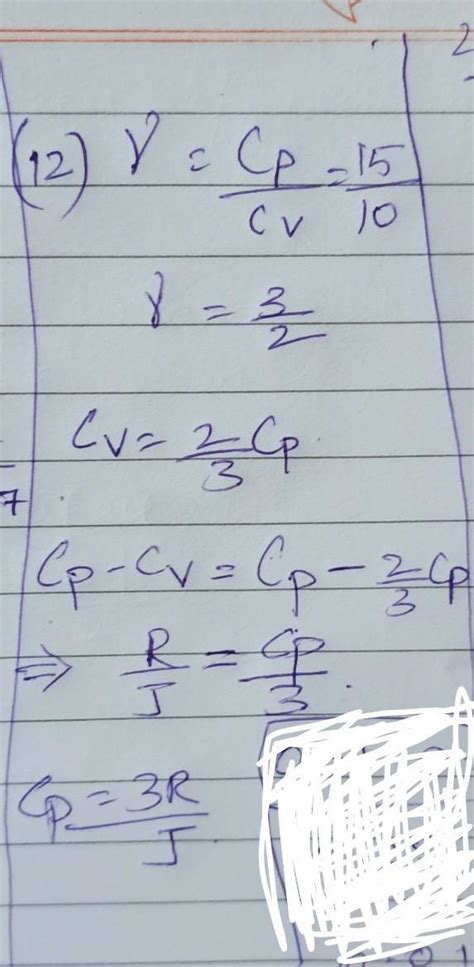 (12) γ = Cp/Cv = 15/10
γ = 3/2
Cv = 2/3 Cp
Cp - Cv = Cp - 2/3 Cp
⇒ R/J = Cp/3
Cp = 3R/J